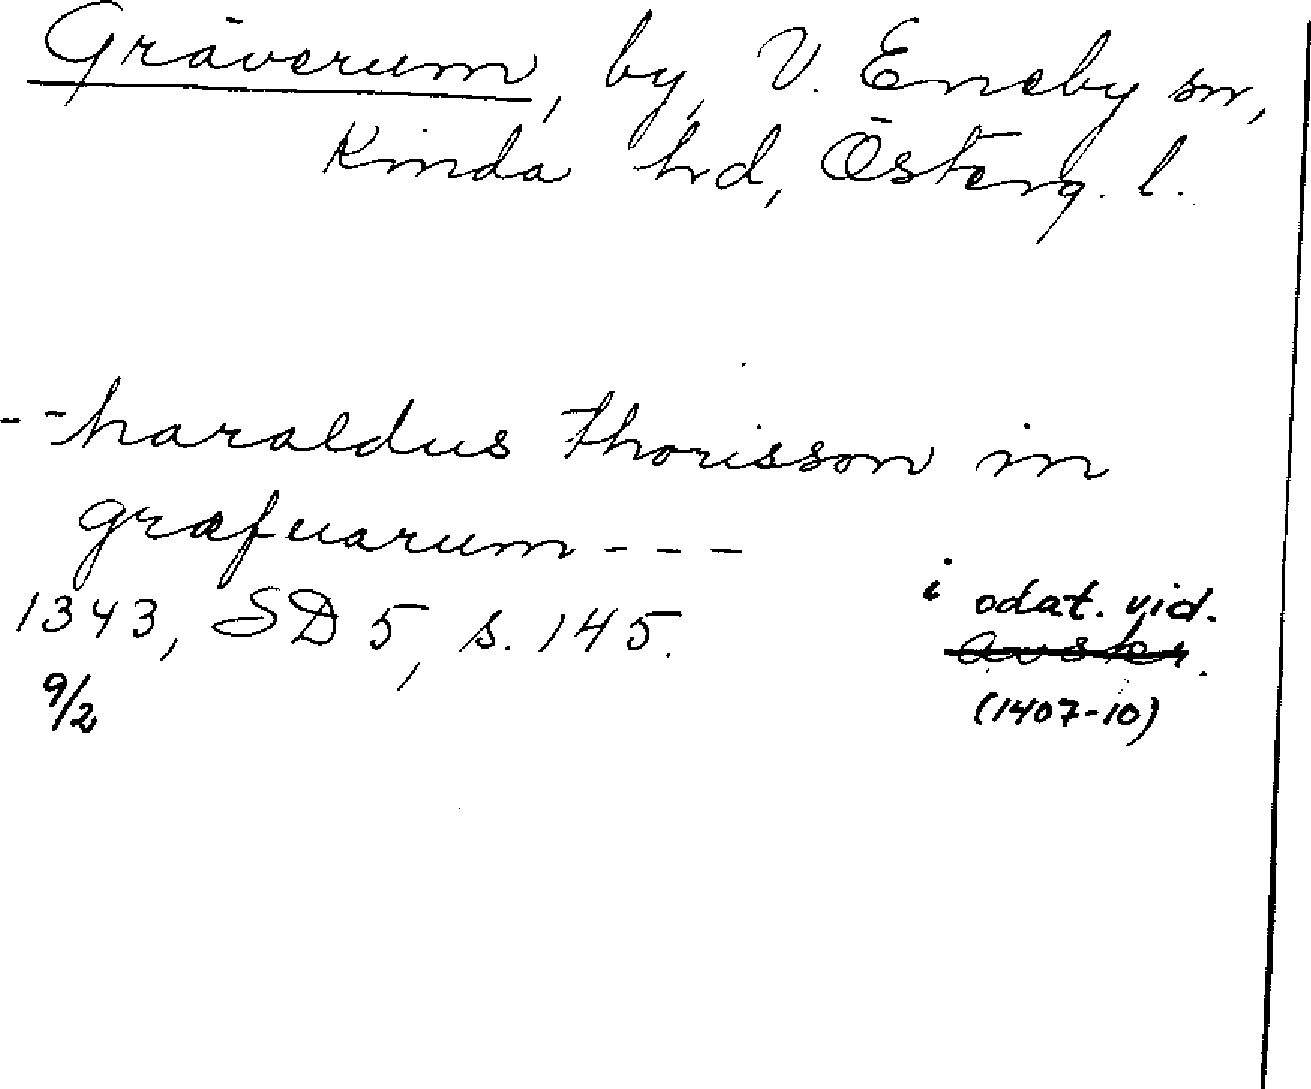 Gräverum, by, V. Eneby sn,
Kinda hd, Österg. l.
-- haraldus thorisson in
græfuarum ---
1343, SD 5, s. 145.
9/2
i odat. vid.
avskr.
(1407-10)